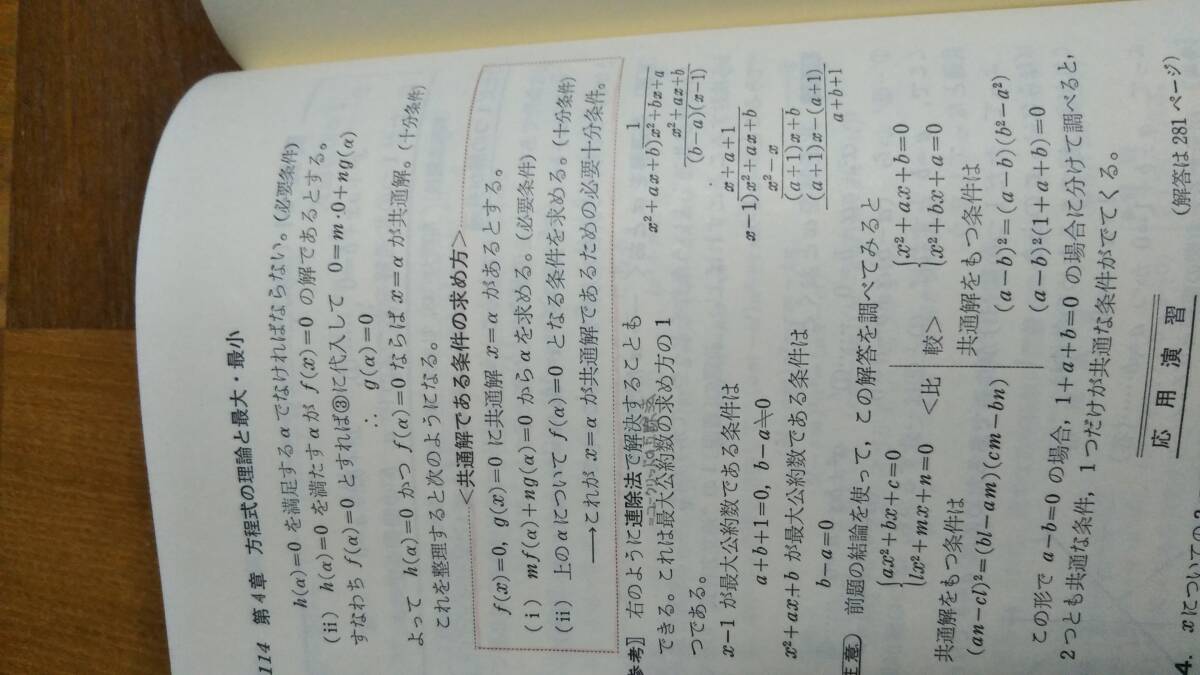 114 第4章 方程式の理論と最大・最小
h(α)=0 を満足するαでなければならない。(必要条件)
(ii) h(α)=0 を満たすαが f(x)=0 の解であるとする。
すなわち f(α)=0 とすれば③に代入して 0=m·0+ng(α)
∴ g(α)=0
よって h(α)=0 かつ f(α)=0 ならば x=α が共通解。(十分条件)
これを整理すると次のようになる。
<共通解である条件の求め方>
f(x)=0, g(x)=0 に共通解 x=α があるとする。
(i) mf(α)+ng(α)=0 からαを求める。(必要条件)
(ii) 上のαについて f(α)=0 となる条件を求める。(十分条件)
→これが x=α が共通解であるための必要十分条件。
参考〛 右のように連除法で解決することも
できる。これは最大公約数の求め方の1
つである。
x-1 が最大公約数である条件は
a+b+1=0, b-a≠0
x²+ax+b が最大公約数である条件は
b-a=0
1
x²+ax+b)x²+bx+a
x²+ax+b
(b-a)(x-1)
x+a+1
x-1)x²+ax+b
x²-x
(a+1)x+b
(a+1)x-(a+1)
a+b+1
注意 前題の結論を使って，この解答を調べてみると
{ax²+bx+c=0
{lx²+mx+n=0
<比較>
{x²+ax+b=0
{x²+bx+a=0
共通解をもつ条件は
(an-cl)²=(bl-am)(cm-bn)
共通解をもつ条件は
(a-b)²=(a-b)(b²-a²)
(a-b)²(1+a+b)=0
この形で a-b=0 の場合，1+a+b=0 の場合に分けて調べると，
2つとも共通な条件，1つだけが共通な条件がでてくる。
応用演習
(解答は281ページ)
4. xについての2